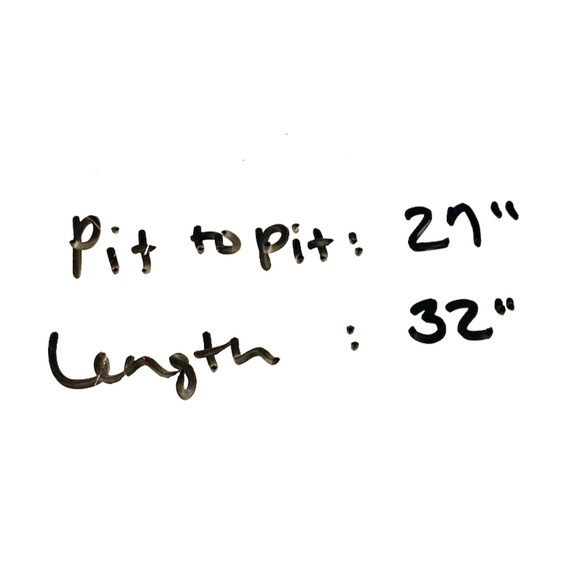 Pit to pit: 27"
Length : 32"